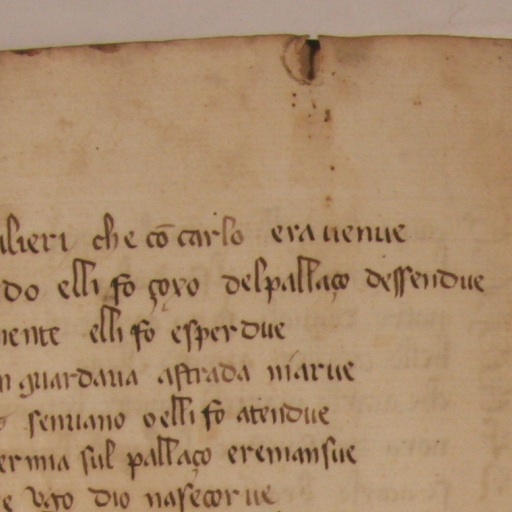 alieri che cō carlo era uenue
do elli fo çoxo del pallaço dessendue
mente elli fo esperdue
n guardaua astrada marue
senuano o elli fo atendue
ermia sul pallaço eremansue
e vgo dio nasecorue